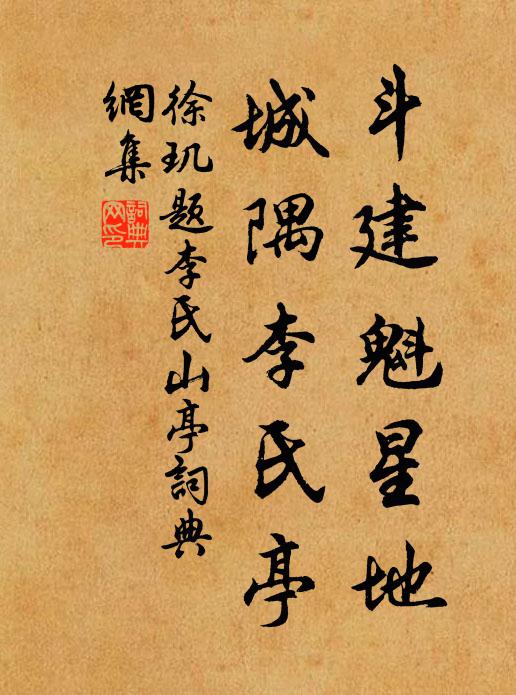 斗建魁星地
城隅李氏亭
徐玑题李氏山亭詞典
網集
詞典网印